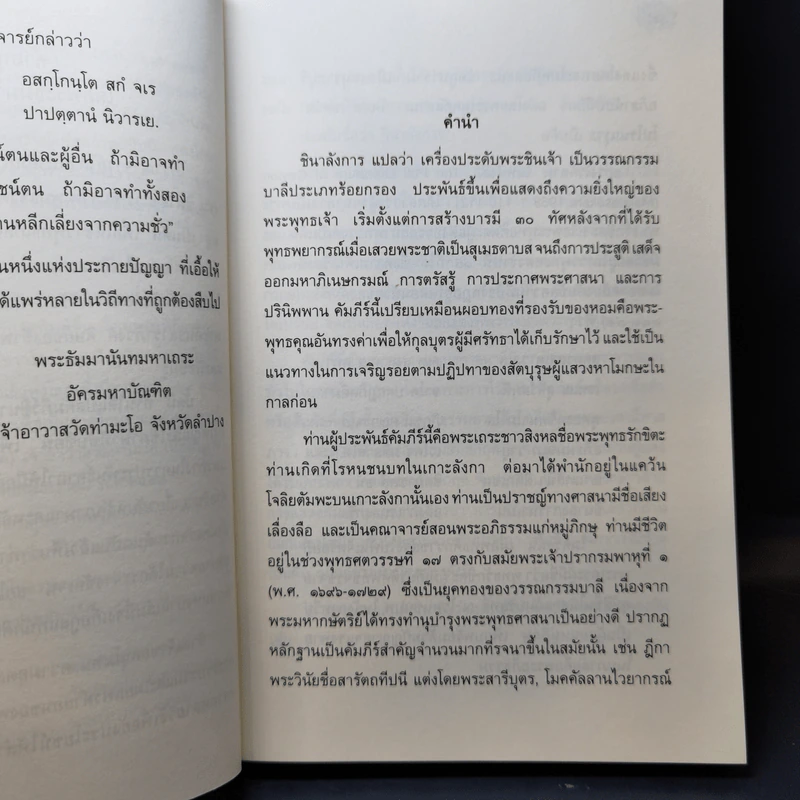 จารย์กล่าวว่า
อสกฺโกนฺโต สกํ จเร
ปาปตฺตานํ นิวารเย.
น์ตนและผู้อื่น ถ้ามิอาจทำ
ชน์ตน ถ้ามิอาจทำทั้งสอง
านหลีกเลี่ยงจากความชั่ว”
นหนึ่งแห่งประกายปัญญา ที่เอื้อให้
ด้แพร่หลายในวิถีทางที่ถูกต้องสืบไป
พระธัมมานันทมหาเถระ
อัครมหาบัณฑิต
จ้าอาวาสวัดท่ามะโอ จังหวัดลำปาง
คำนำ
ชินาลังการ แปลว่า เครื่องประดับพระชินเจ้า เป็นวรรณกรรม
บาลีประเภทร้อยกรอง ประพันธ์ขึ้นเพื่อแสดงถึงความยิ่งใหญ่ของ
พระพุทธเจ้า เริ่มตั้งแต่การสร้างบารมี ๓๐ ทัศหลังจากที่ได้รับ
พุทธพยากรณ์เมื่อเสวยพระชาติเป็นสุเมธดาบส จนถึงการประสูติ เสด็จ
ออกมหาภิเนษกรมณ์ การตรัสรู้ การประกาศพระศาสนา และการ
ปรินิพพาน คัมภีร์นี้เปรียบเหมือนผอบทองที่รองรับของหอมคือพระ-
พุทธคุณอันทรงค่าเพื่อให้กุลบุตรผู้มีศรัทธาได้เก็บรักษาไว้ และใช้เป็น
แนวทางในการเจริญรอยตามปฏิปทาของสัตบุรุษผู้แสวงหาโมกษะใน
กาลก่อน
ท่านผู้ประพันธ์คัมภีร์นี้คือพระเถระชาวสิงหลชื่อพระพุทธรักขิตะ
ท่านเกิดที่โรหนชนบทในเกาะลังกา ต่อมาได้พำนักอยู่ในแคว้น
โจลิยตัมพะบนเกาะลังกานั้นเอง ท่านเป็นปราชญ์ทางศาสนามีชื่อเสียง
เลื่องลือ และเป็นคณาจารย์สอนพระอภิธรรมแก่หมู่ภิกษุ ท่านมีชีวิต
อยู่ในช่วงพุทธศตวรรษที่ ๑๗ ตรงกับสมัยพระเจ้าปรากรมพาหุที่ ๑
(พ.ศ. ๑๖๙๖-๑๗๒๙) ซึ่งเป็นยุคทองของวรรณกรรมบาลี เนื่องจาก
พระมหากษัตริย์ได้ทรงทำนุบำรุงพระพุทธศาสนาเป็นอย่างดี ปรากฏ
หลักฐานเป็นคัมภีร์สำคัญจำนวนมากที่รจนาขึ้นในสมัยนั้น เช่น ฎีกา
พระวินัยชื่อสารัตถทีปนี แต่งโดยพระสารีบุตร, โมคคัลลานไวยากรณ์